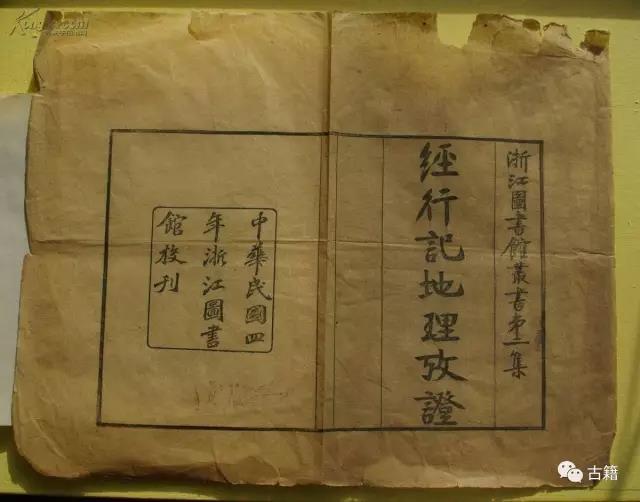 浙江圖書館叢書第一集
經行記地理攷證
中華民國四
年浙江圖書
館校刊
古籍